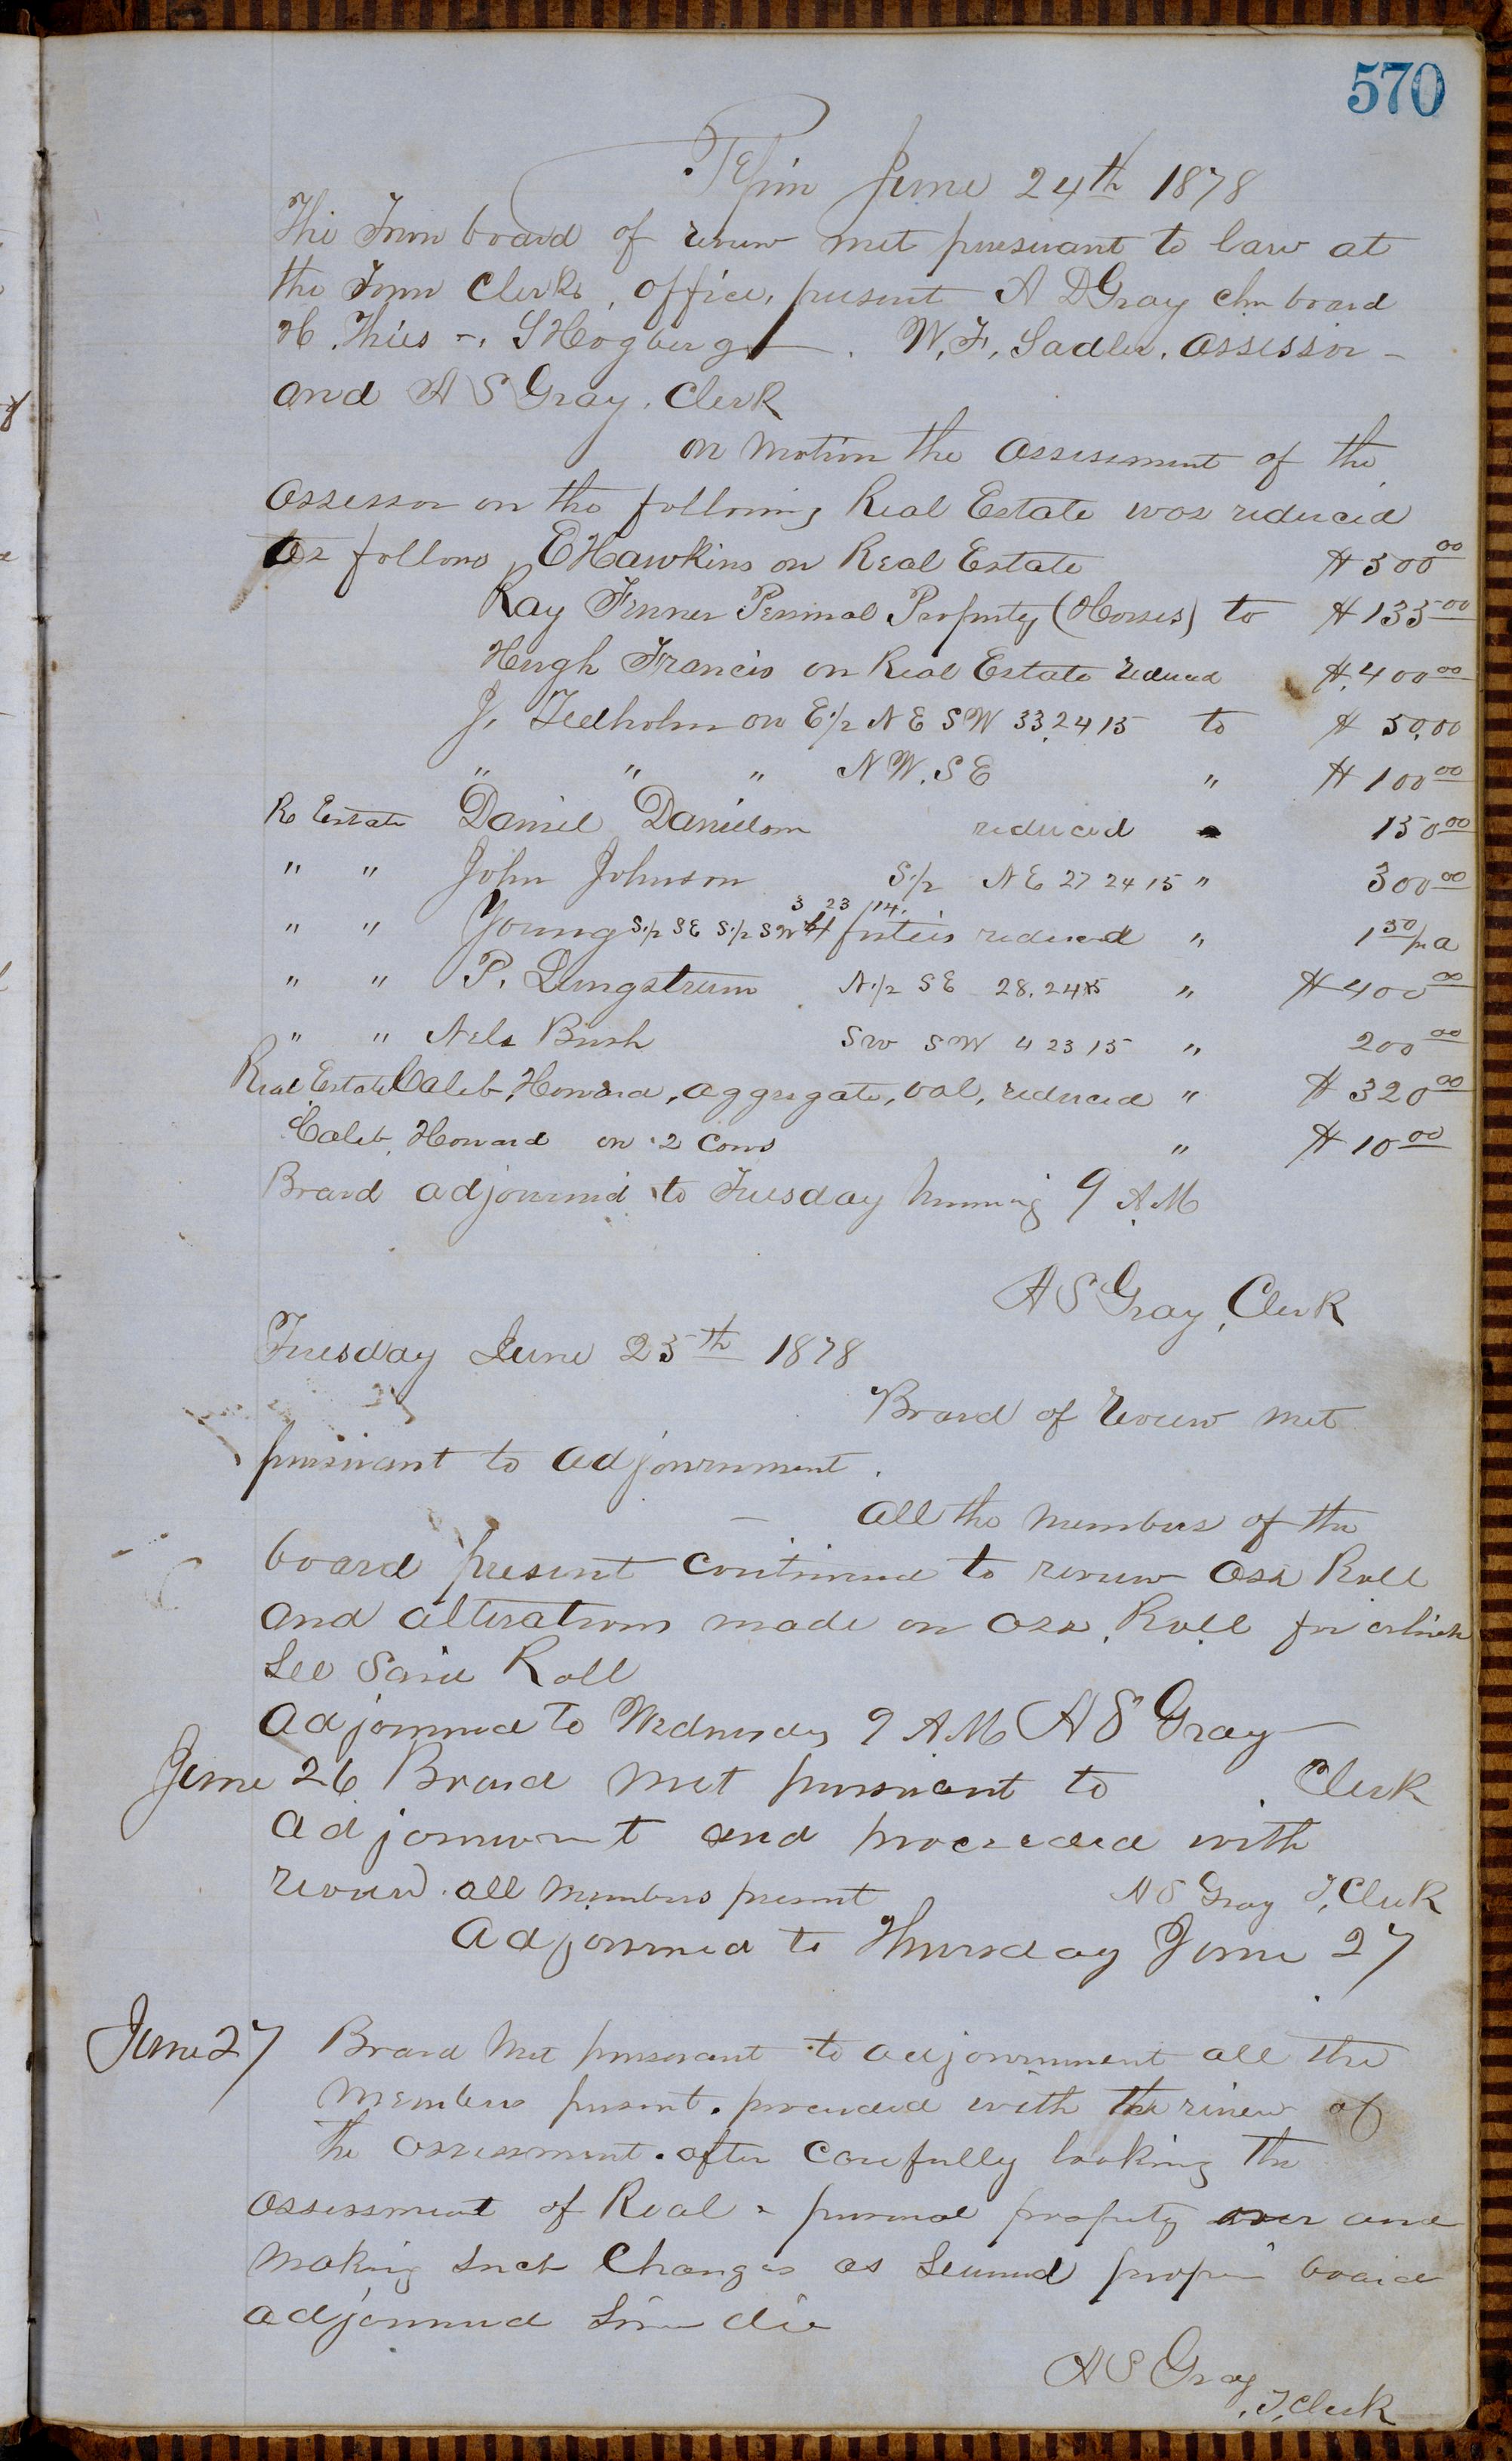 570
Pepin June 24th 1878
The Town board of review met pursuant to law at
the Town Clerks, office, present A D Gray chm board
H. Thies -, S Hogberg. W. F. Sadler, Assessor -
and A S Gray, Clerk
on motion the assessment of the
assessor on the following Real Estate was reduced
as follows, E Hawkins on Real Estate $300 00
Ray Personal Property (Horses) to $135 00
Hugh Francis on Real Estate reduced $400 00
J. on E 1/2 N E S W 33, 24 15 to $50.00
" " " N W, S E " $100 00
R Estate Daniel Danielson reduced 150 00
" " John Johnson S 1/2 N E 27 24 15 " 300 00
3 23 /14.
" " Young S 1/2 S E S 1/2 S W reduced " 1 50/pr a
" " P. Lungstrum N 1/2 S E 28, 24 15 " $400 00
" " Nels Bush S W S W 4 23 15 " 200 00
Real Estate Caleb, Howard, aggregate, val, reduced " $320 00
Caleb, Howard on 2 Cows " $10 00
Board adjourned to Tuesday morning 9 A.M
A S Gray, Clerk
Tuesday June 25th 1878
Board of review met
pursuant to adjournment.
All the members of the
board present continued to review Ass Roll
and alterations made on Ass. Roll for which
see said Roll
Adjourned to Wednesday 9 A M A S Gray
June 26 Board met pursuant to Clerk
adjournment and proceeded with
review. all members present A S Gray T, Clerk
Adjourned to Thursday June 27
June 27 Board met pursuant to adjournment all the
members present. proceeded with the review of
the assessment. after carefully looking the
assessment of Real & personal property over and
making such changes as seemed proper board
adjourned Sine die
A S Gray
T, Clerk